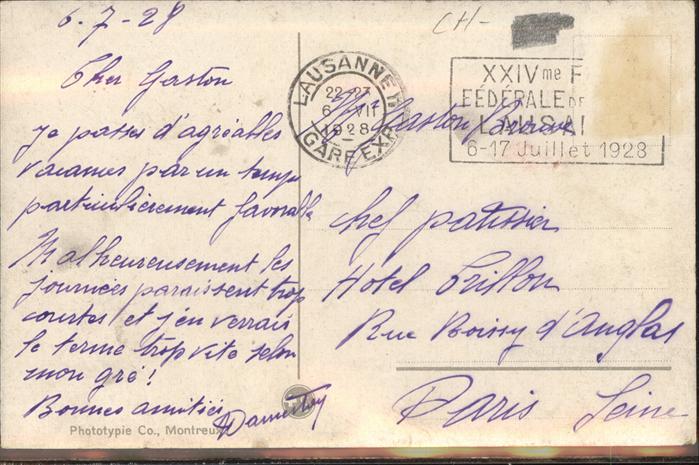 6-7-28
CH-
Cher Gaston
je passes d'agréables
vacances par un temps
particulièrement favorable
Malheureusement les
journées paraissent trop
courtes et j'en verrais
le terme trop vite selon
mon gré!
Bonnes amitiés
Phototypie Co., Montreux
LAUSANNE 1
22-23
6 VII
1928
GARE EXP.
XXIVme F
FÉDÉRALE DE
LAUSA
6-17 Juillet 1928
Mr Gaston
chef patissier
Hotel Crillon
Rue Boissy d'Anglas
Paris Seine